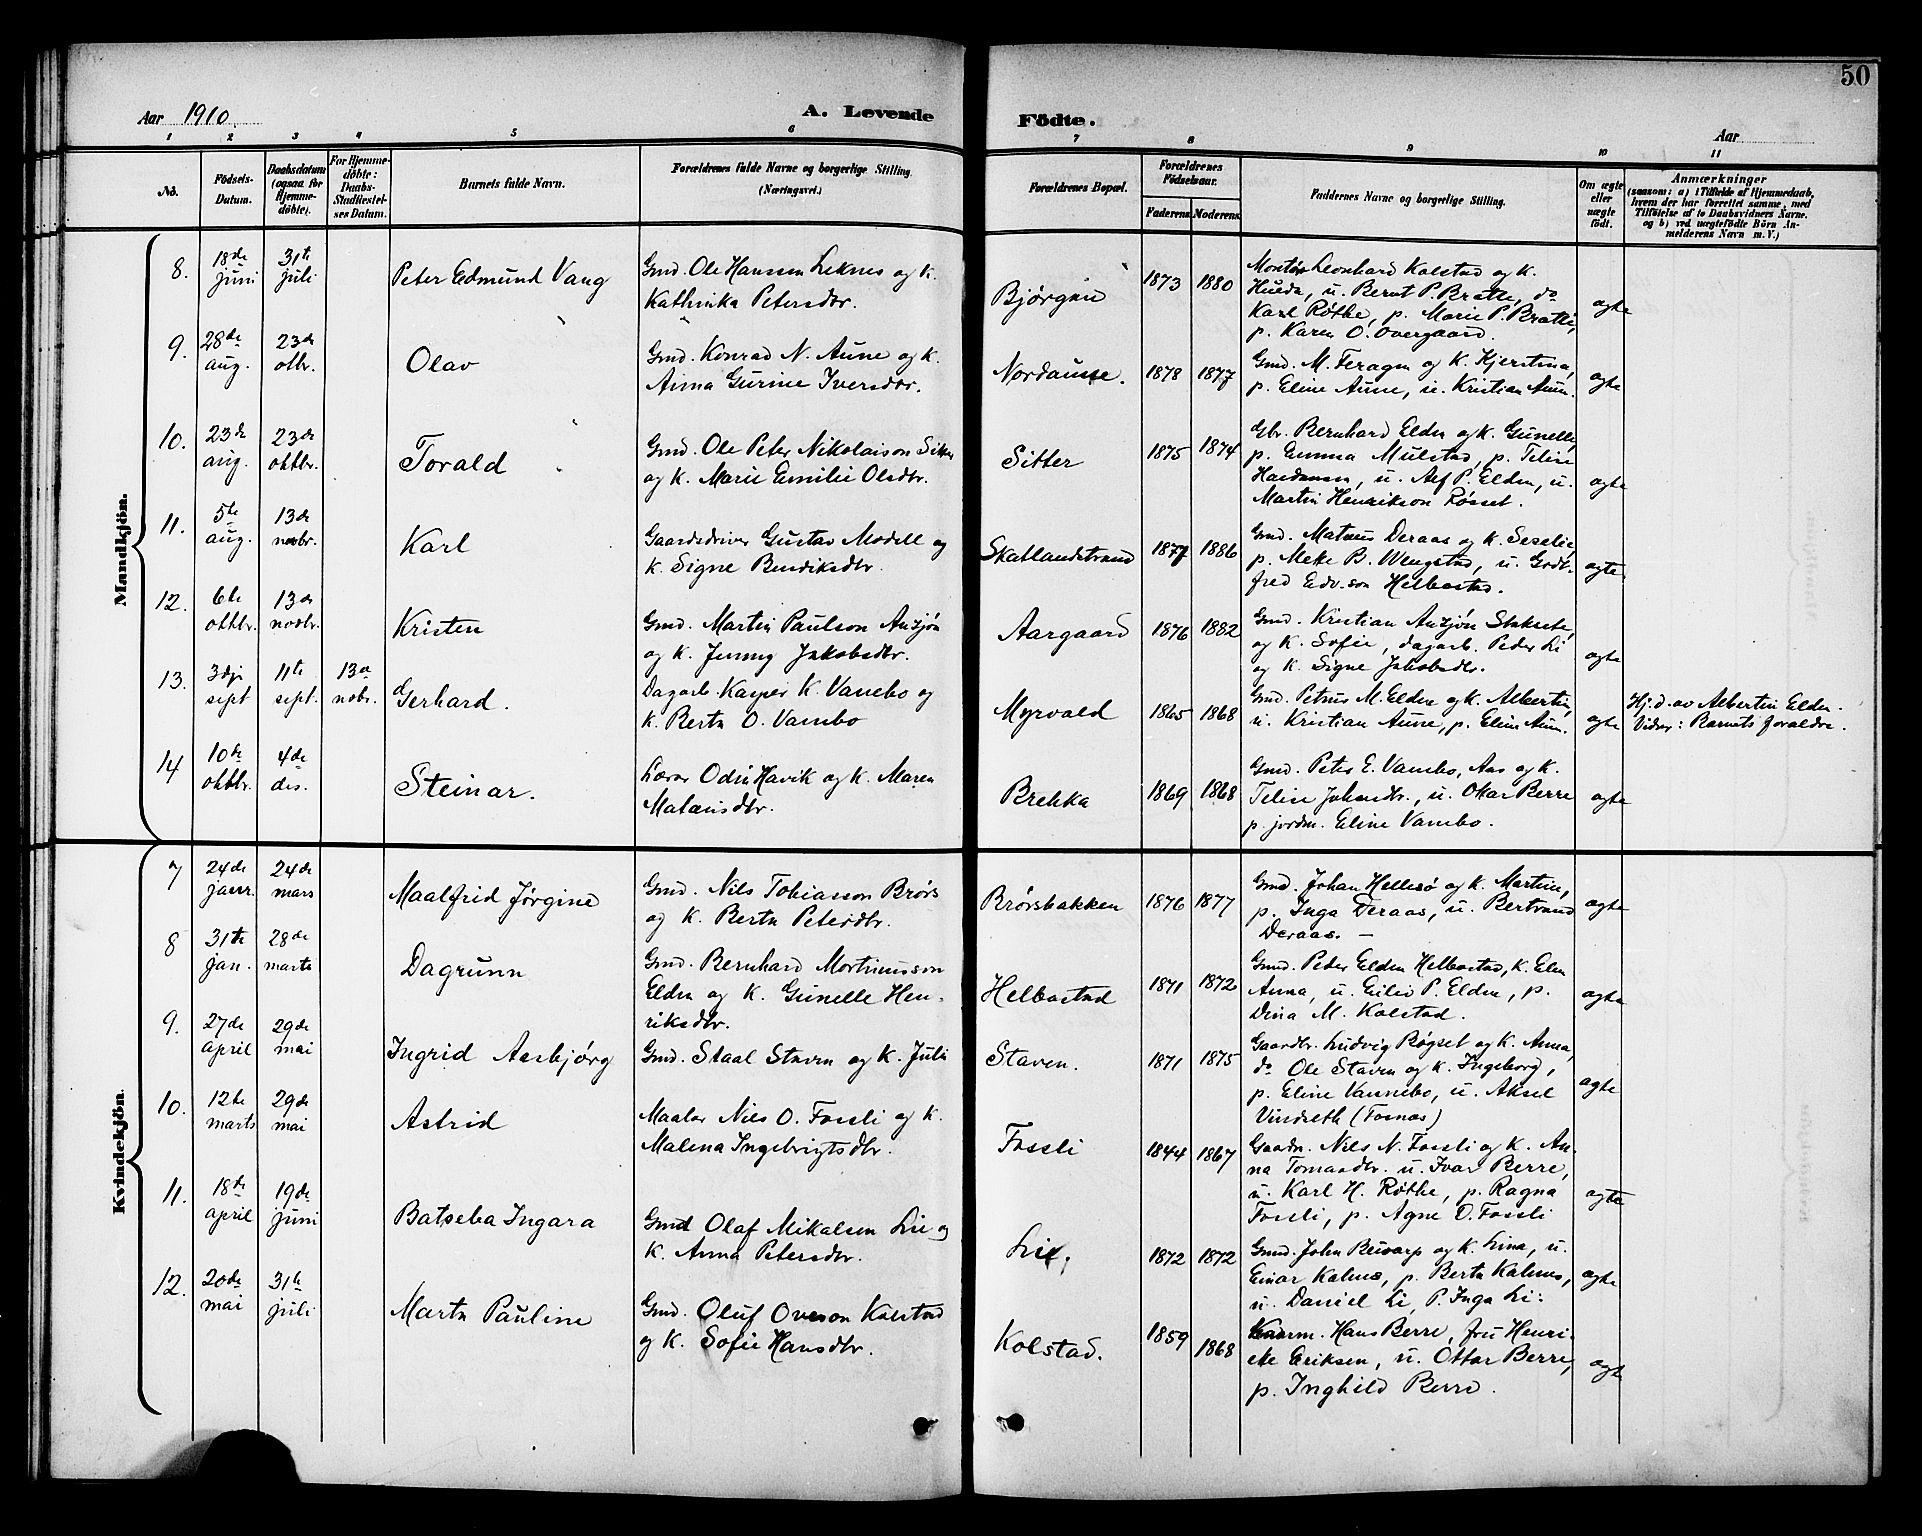 50
Aar 1910
A. Levende
Födte.
Aar
1 2 3 4 5 6 7 8 9 10 11
No.
Födsels-
Datum.
Daabsdatum
(ogsaa for
Hjemme-
döbte).
For Hjemme-
döbte:
Daabs-
Stadfæstel-
ses Datum.
Barnets fulde Navn.
Forældrenes fulde Navne og borgerlige Stilling.
(Næringsvei.)
Forældrenes Bopæl.
Forældrenes
Födselsaar.
Faderens.
Moderens.
Faddernes Navne og borgerlige Stilling.
Om ægte
eller
uægte
födt.
Anmærkninger
(saasom: a) i Tilfælde af Hjemmedaab,
hvem der har forrettet samme, med
Tilföielse af to Daabsvidners Navne.
og b) ved uægtefödte Börn An-
melderens Navn m. V.)
Mandkjön.
8.
18de
juni
31te
juli
Peter Edmund Vang
Gmd. Ole Hansen Leknes og k.
Kathinka Petersdtr.
Bjørgan
1873
1880
Montør Leonhard Kolstad og k.
Hulda, u. Bernt P. Bratli, do
Karl Røthe, p. Marie P. Bratli,
p. Karen O. Overgaard.
ægte
9.
28de
aug.
23de
otbr.
Olav
Gmd. Konrad N. Aune og k.
Anna Gurine Iversdtr.
Nordaune.
1878
1877
Gmd. M. Feragen og k. Kjerstina,
p. Eline Aune, u. Kristian Aun.
ægte
10.
23de
aug.
23de
oktbr.
Torald
Gmd. Ole Peter Nikolaison Sitter
og k. Marie Emilie Olsdtr.
Sitter
1875
1874
Gbr. Bernhard Elden og k. Gunelle,
p. Gunna Mulstad, p. Teline
Haldansen, u. Alf P. Elden, u.
Martin Henrikson Røsset.
ægte
11.
5te
aug.
13de
novbr.
Karl
Gaardsdriver Gustav Modell og
k. Signe Bendiksdtr.
Skatlandstrand
1877
1886
Gmd. Matæus Deraas og k. Seselie,
p. Meke B. Wengstad, u. Godt-
fred Edv.son Helbostad.
ægte
12.
6te
oktbr.
13de
novbr.
Kristen
Gmd. Martin Paulson Anzjøn
og k. Jenny Jakobsdtr.
Aargaard
1876
1882
Gmd. Kristian Anzjøn Staksete,
og k. Sofie, dagarb. Peder Li
og k. Signe Jakobsdtr.
ægte
13.
3dje
sept
11te
sept.
13de
nobr.
Gerhard.
Dagarb. Kasper K. Vannebo og
k. Berta O. Vannebo
Myrvald
1865
1868
Gmd. Petrus M. Elden og k. Albertin,
u. Kristian Aune, p. Eline Aun.
ægte
Hj.d. av Albertin Elden.
Vidner: Barnets forældre.
14
10de
oktbr.
4de
des.
Steinar.
Lærer Odin Havik og k. Maren
Matæusdtr.
Brekka
1869
1868
Gmd. Peter E. Vannebo, Aas og k.
Teline Johandtr., u. Otar Berre
p. jordm. Eline Vannebo.
ægte
Kvindekjön.
7
24de
janr.
24de
mars
Maalfrid Jørgine
Gmd. Nils Tobiasson Brørs
og k. Berta Petersdtr.
Brørsbakken
1876
1877
Gmd. Johan Hellesø og k. Martine,
p. Inga Deraas, u. Bertrand
Deraas. —
ægte
8
31te
jan.
28de
marts
Dagrunn
Gmd. Bernhard Mortinusson
Elden og k. Gunelle Hen-
riksdtr.
Helbostad
1871
1872
Gmd. Peder Elden Helbostad, k. Elen
Anna, u. Eilif P. Elden, p.
Dina M. Kolstad.
ægte
9.
27de
april
29de
mai
Ingrid Aasbjørg
Gmd. Staal Staven og k. Juli
Staven.
1871
1875
Gaardbr. Ludvig Røgset og k. Anna,
do Ole Staven og k. Ingeborg,
p. Eline Vannebo, u. Aksel
Vindseth (Fosnæs)
ægte
10.
12te
marts
29de
mai
Astrid
Maaler Nils O. Fossli og k.
Malena Ingebrigtsdtr.
Fossli
1844
1867
Gaardm. Nils N. Fossli og k. An-
na Tomasdtr. u. Ivar Berre,
u. Karl H. Røthe, p. Ragna
Fossli, p. Agne O. Fossli
ægte
11.
18de
april
19de
juni
Batseba Ingara
Gmd Olaf Mikalsen Lie og
k. Anna Petersdtr.
Lie,
1872
1872
Gmd. John Beivarp og k. Lina, u.
Einar Kalnes, p. Berta Kalnes,
u. Daniel Li, P. Inga Li.
ægte
12.
20de
mai
31te
juli
Marta Pauline
Gmd. Oluf Overson Kolstad
og k. Sofie Hansdtr.
Kolstad.
1859
1868
Gaarm. Hans Berre, fru Henri-
ette Eriksen, u. Ottar Berre,
p. Inghild Berre.
ægte